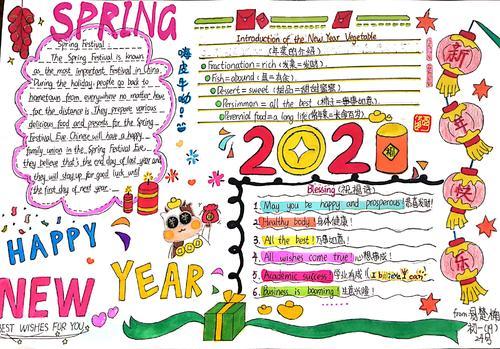 SPRING
Spring Festival
The Spring Festival is known
as the most important Festival in China.
During the holiday, people go back to
hometown from everywhere no matter how
far the distance is. They prepare various
delicious food and presents for the Spring
Festival Eve. Chinese will have a happy
family union in the Spring Festival Eve.
they believe that's the end day of last year and
they will stay up for good luck until
the first day of next year.
嗨皮牛动!
Introduction of the New Year Vegetable
(年菜的介绍)
Fractionation = rich
Fish = abound
Dessert = sweet
Persimmon = all the best
Perennial food = a long life
2021
新年快乐
Blessing (祝福语)
1. May you be happy and prosperous! 恭喜发财!
2. Healthy body! 身体健康!
3. All the best! 万事如意!
4. All wishes come true! 心想事成!
5. Academic success! 学业有成! I believe I can
6. Business is booming! 生意兴隆!
HAPPY
NEW
YEAR
BEST WISHES FOR YOU
from
初一(19)
24号